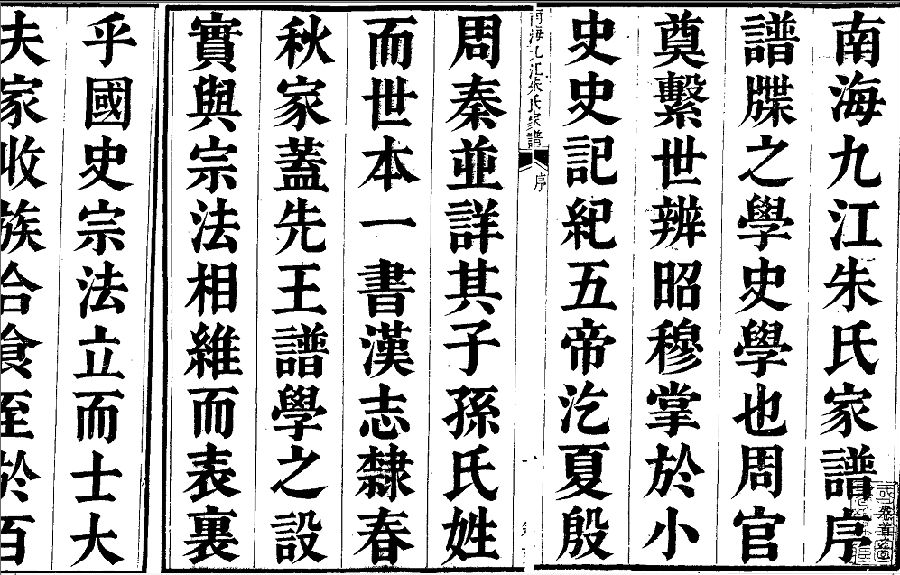 南海九江朱氏家譜序
譜牒之學史學也周官
奠繫世辨昭穆掌於小
史史記紀五帝汔夏殷
南海九江朱氏家譜
序
周秦並詳其子孫氏姓
而世本一書漢志隸春
秋家蓋先王譜學之設
實與宗法相維而表裏
乎國史宗法立而士大
夫家收族合食至於百